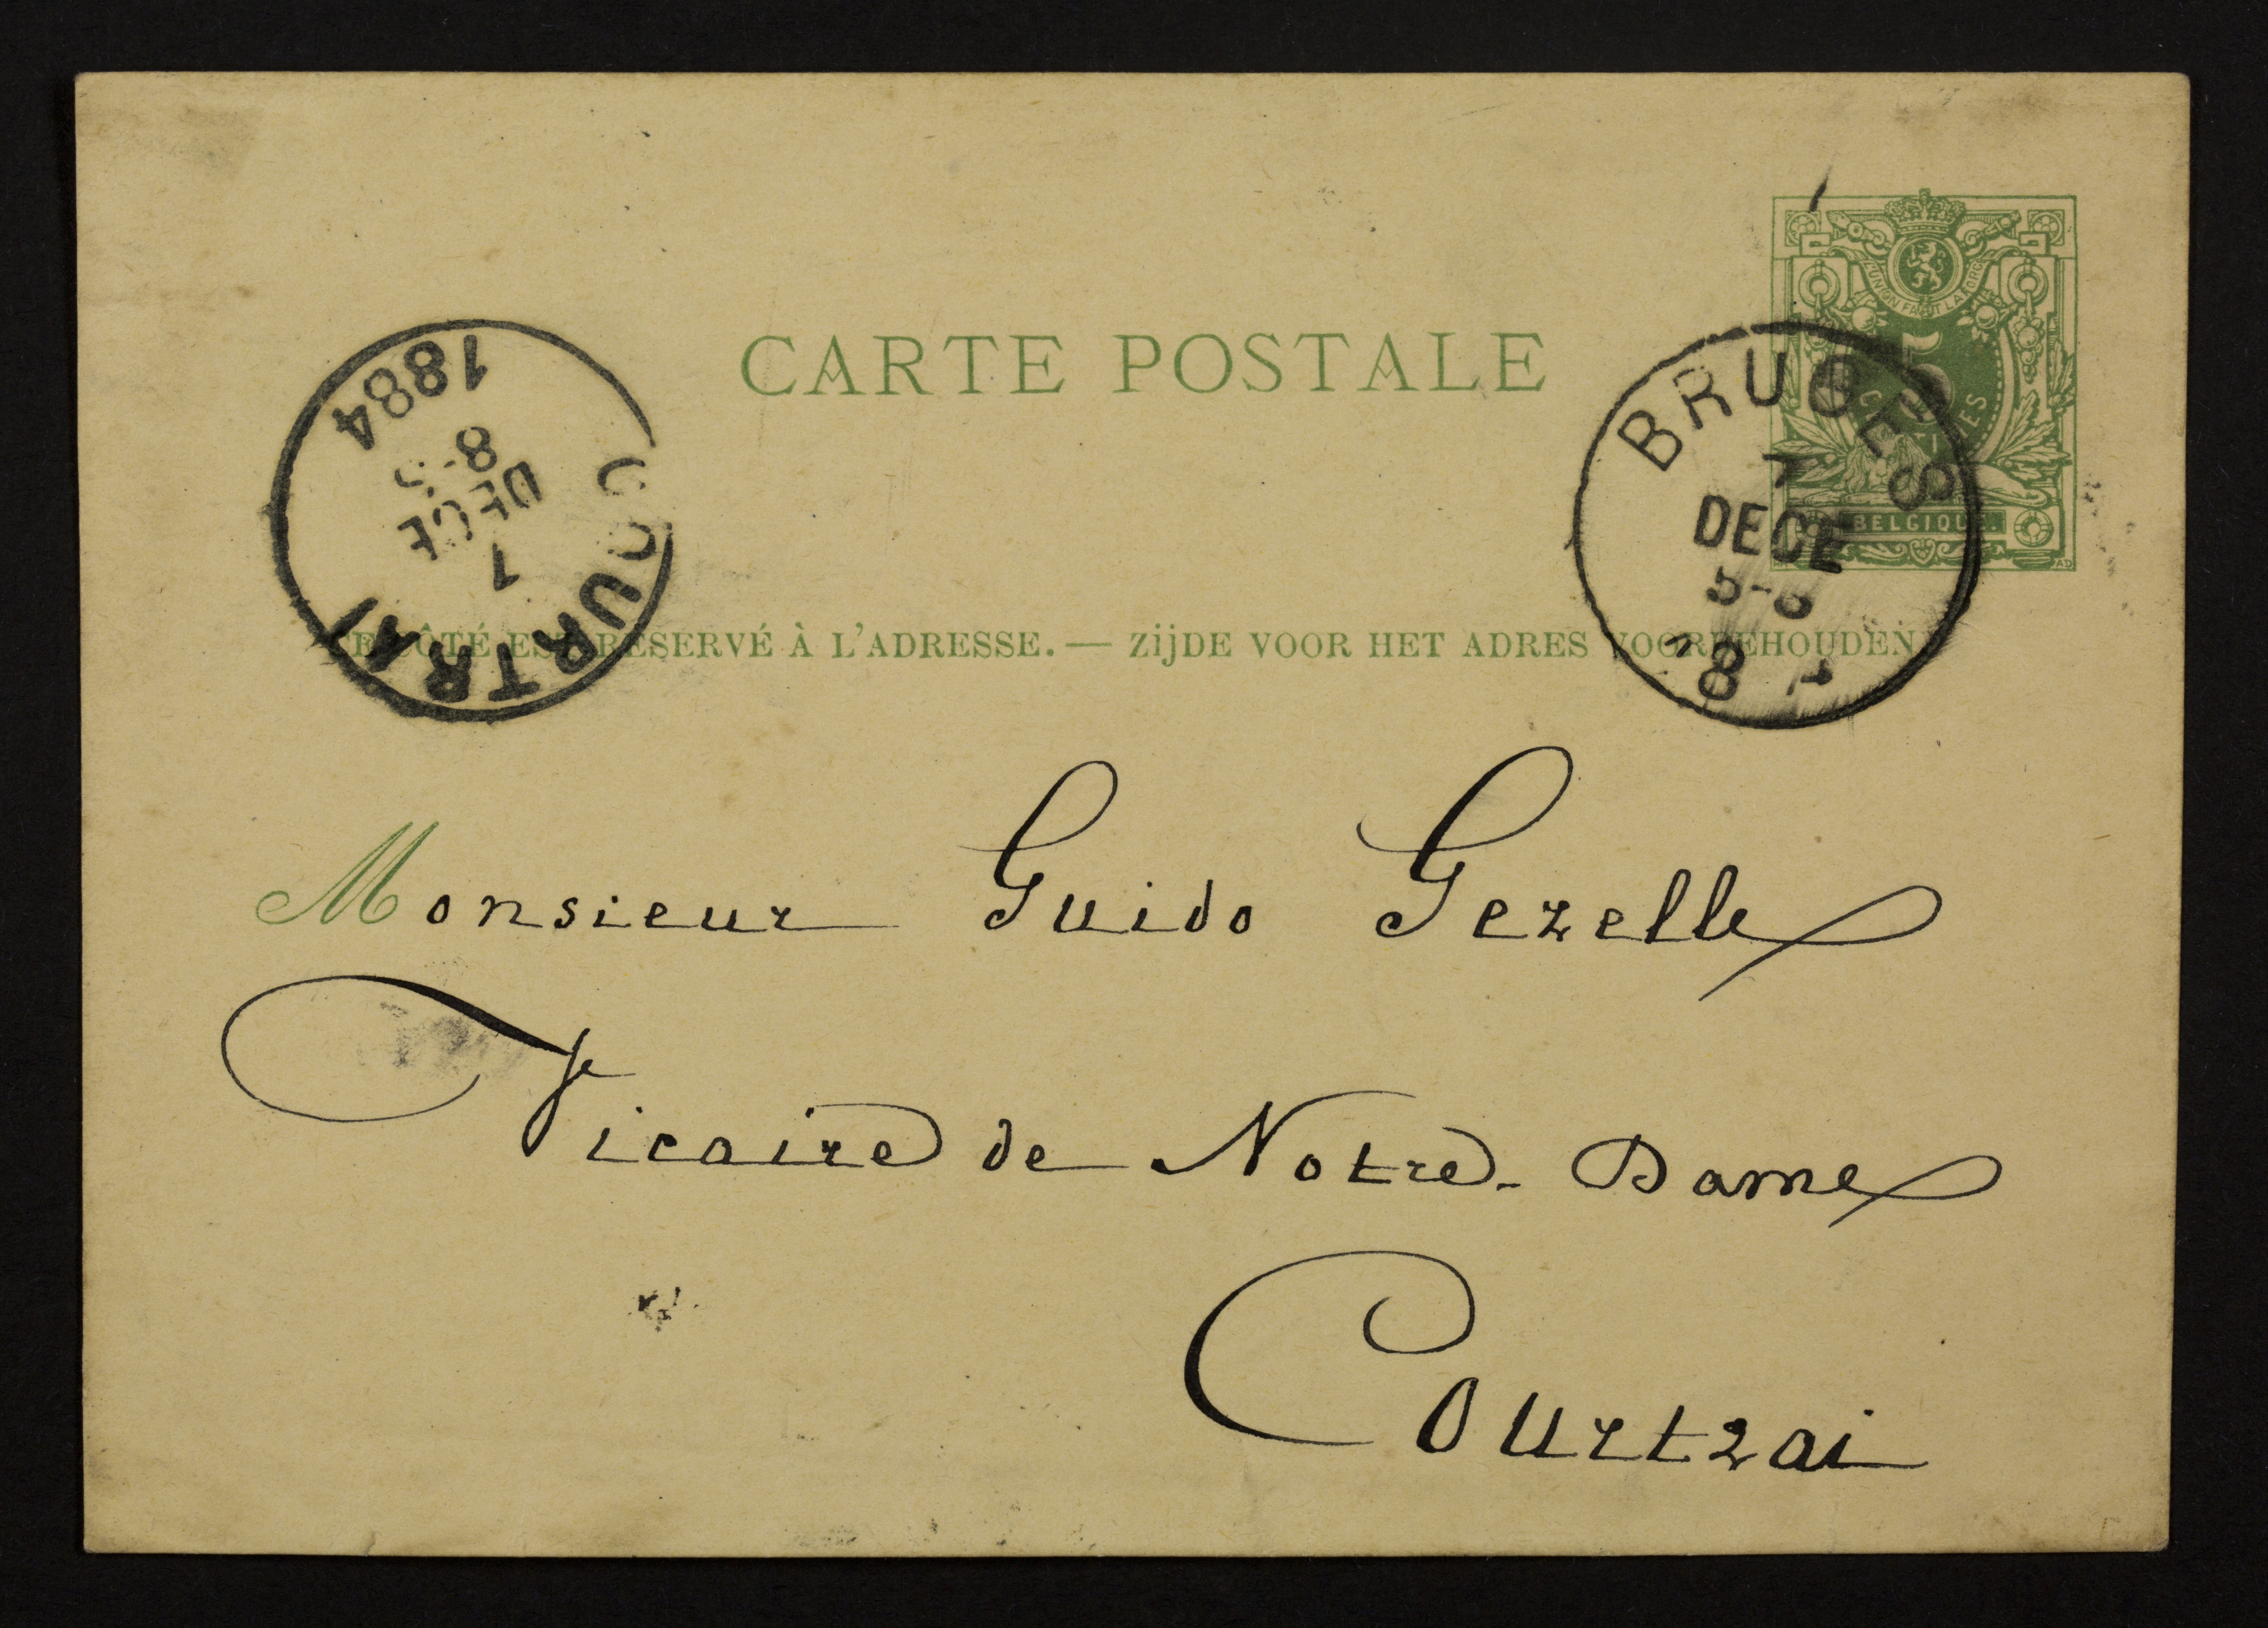 CARTE POSTALE
L'UNION FAIT LA FORCE
5
CENTIMES
BELGIQUE.
BRUGES
7
DECE
5-6
COURTRAI
7
DECE
8-S
1884
CE CÔTÉ EST RÉSERVÉ À L'ADRESSE. — ZIJDE VOOR HET ADRES VOORBEHOUDEN.
Monsieur Guido Gezelle
Vicaire de Notre-Dame
Courtrai